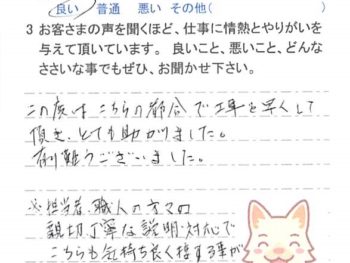 良い 普通 悪い その他( )
3 お客さまの声を聞くほど、仕事に情熱とやりがいを
与えて頂いています。 良いこと、悪いこと、どんな
ささいな事でもぜひ、お聞かせ下さい。
この度はこちらの都合で工事を早くして
頂き、とても助かりました。
有難うございました。
※担当者、職人の方々の
親切丁寧な説明・対応で
こちらも気持ち良く接する事が